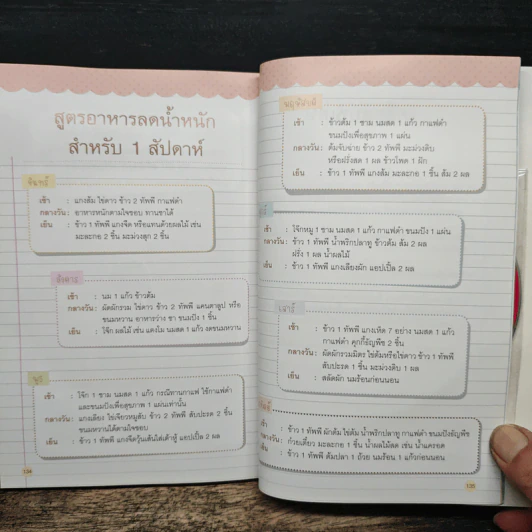 สูตรอาหารลดน้ำหนัก
สำหรับ 1 สัปดาห์
จันทร์
เช้า : แกงส้ม ไข่ดาว ข้าว 2 ทัพพี กาแฟดำ
กลางวัน : อาหารหนักตามใจชอบ ทานชาได้
เย็น : ข้าว 1 ทัพพี แกงจืด หรือแทนด้วยผลไม้ เช่น
มะละกอ 2 ชิ้น มะม่วงสุก 2 ชิ้น
อังคาร
เช้า : นม 1 แก้ว ข้าวต้ม
กลางวัน : ผัดผักรวม ไข่ดาว ข้าว 2 ทัพพี แคนตาลูป หรือ
ขนมหวาน อาหารว่าง ชา ขนมปัง 1 ชิ้น
เย็น : โจ๊ก ผลไม้ เช่น แตงโม นมสด 1 แก้ว งดขนมหวาน
พุธ
เช้า : โจ๊ก 1 ชาม นมสด 1 แก้ว กรณีทานกาแฟ ใช้กาแฟดำ
และขนมปังเพื่อสุขภาพ 1 แผ่นเท่านั้น
กลางวัน : แกงเลียง ไข่เจียวหมูสับ ข้าว 2 ทัพพี สับปะรด 2 ชิ้น
ขนมหวานได้ตามใจชอบ
เย็น : ข้าว 1 ทัพพี แกงจืดวุ้นเส้นใส่เต้าหู้ แอปเปิ้ล 2 ผล
134
พฤหัสบดี
เช้า : ข้าวต้ม 1 ชาม นมสด 1 แก้ว กาแฟดำ
ขนมปังเพื่อสุขภาพ 1 แผ่น
กลางวัน : ต้มจับฉ่าย ข้าว 2 ทัพพี มะม่วงดิบ
หรือฝรั่งสด 1 ผล ข้าวโพด 1 ฝัก
เย็น : ข้าว 1 ทัพพี แกงส้ม มะละกอ 1 ชิ้น ส้ม 2 ผล
เช้า : โจ๊กหมู 1 ชาม นมสด 1 แก้ว กาแฟดำ ขนมปัง 1 แผ่น
กลางวัน : ข้าว 1 ทัพพี น้ำพริกปลาทู ข้าวต้ม ส้ม 2 ผล
ฝรั่ง 1 ผล น้ำผลไม้
เย็น : ข้าว 1 ทัพพี แกงเลียงผัก แอปเปิ้ล 2 ผล
เสาร์
เช้า : ข้าว 1 ทัพพี แกงเห็ด 7 อย่าง นมสด 1 แก้ว
กาแฟดำ คุกกี้ธัญพืช 2 ชิ้น
กลางวัน : ผัดผักรวมมิตร ไข่ต้มหรือไข่ดาว ข้าว 1 ทัพพี
สับปะรด 1 ชิ้น มะม่วงดิบ 1 ผล
เย็น : สลัดผัก นมร้อนก่อนนอน
เช้า : ข้าว 1 ทัพพี ผักต้ม ไข่ต้ม น้ำพริกปลาทู กาแฟดำ ขนมปังธัญพืช
กลางวัน : ก๋วยเตี๋ยว มะละกอ 1 ชิ้น น้ำผลไม้สด เช่น น้ำแครอต
เย็น : ข้าว 1 ทัพพี ต้มปลา 1 ถ้วย นมร้อน 1 แก้วก่อนนอน
135